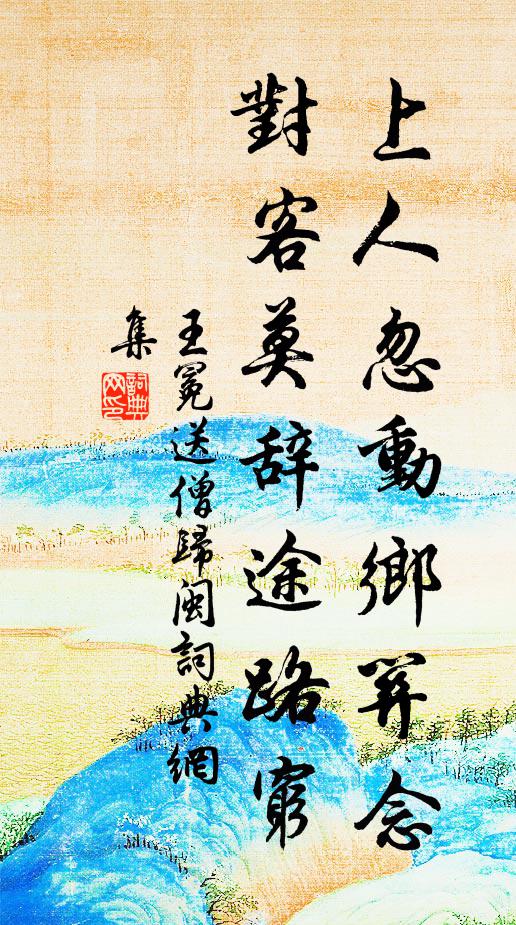 上人忽動鄉關念
對客莫辞途路窮
王冕送僧歸閩詞典網
集
詞典
网印